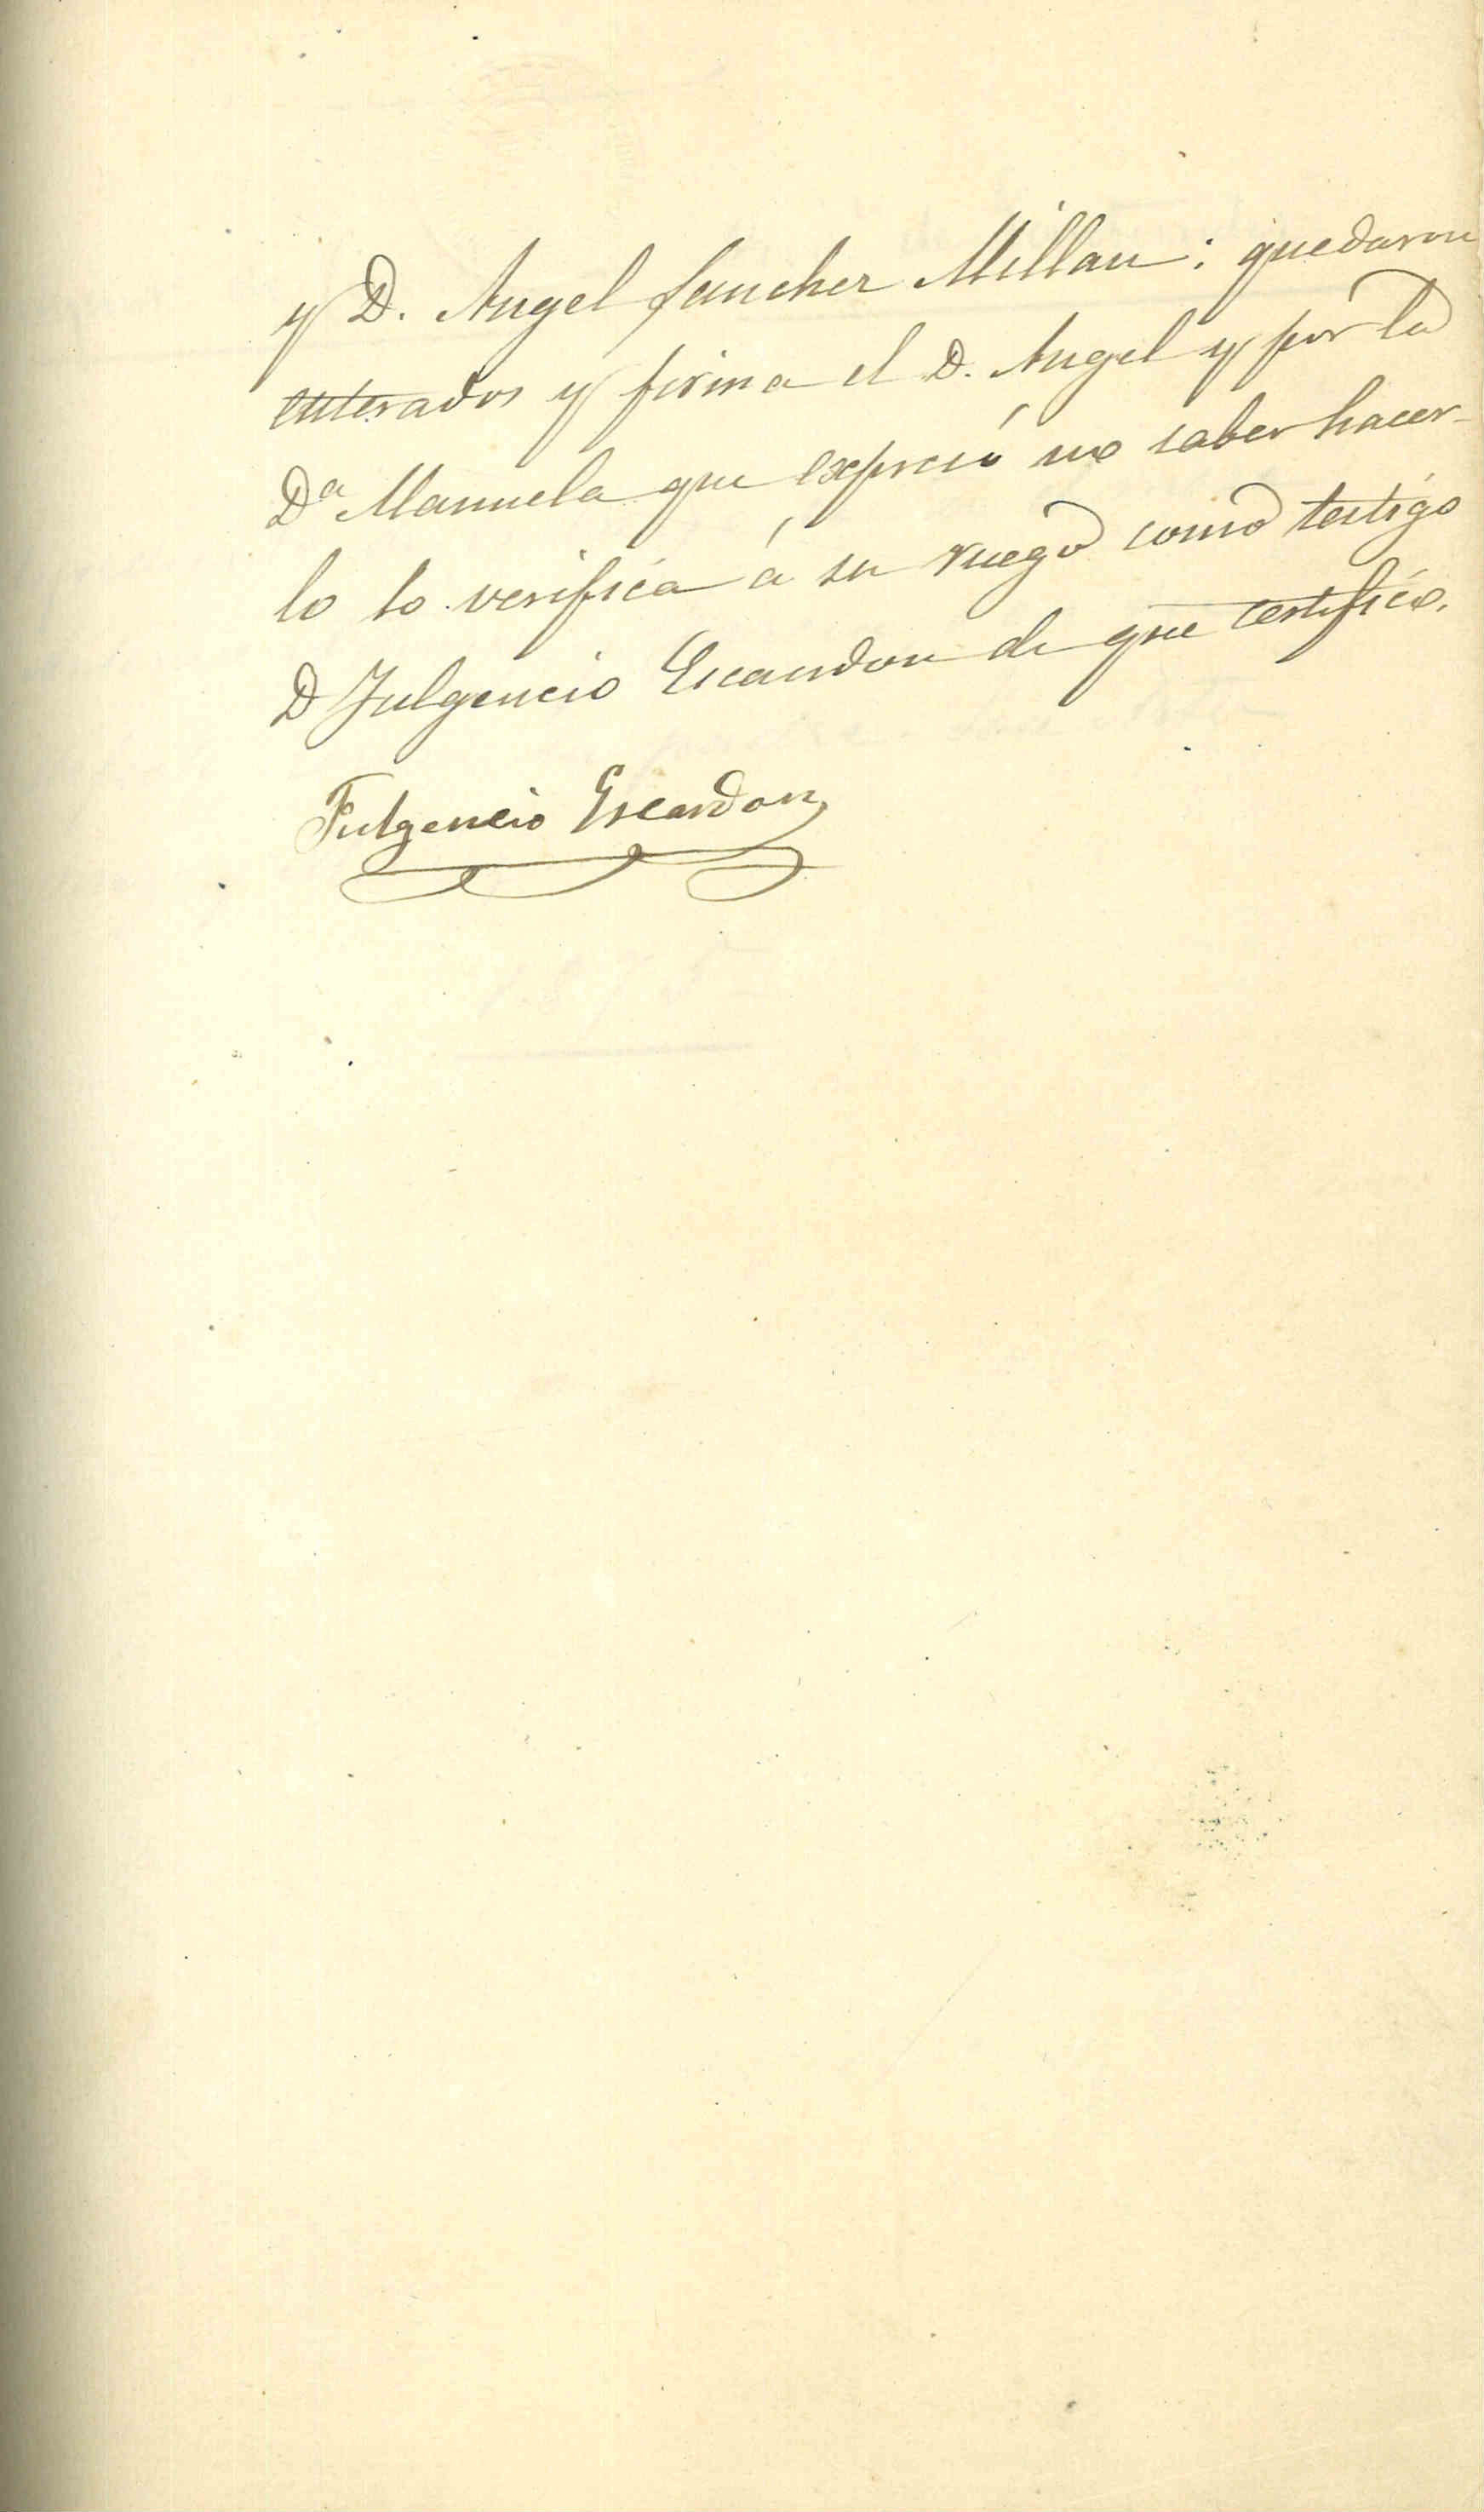 y D. Angel Sanchez Millan: quedaron
enterados y firma el D. Angel y por la
Dª Manuela que expresó no saber hacer-
lo lo verifica á su ruego como testigo
D Fulgencio Escandon de que certifico.
Fulgencio Escandon